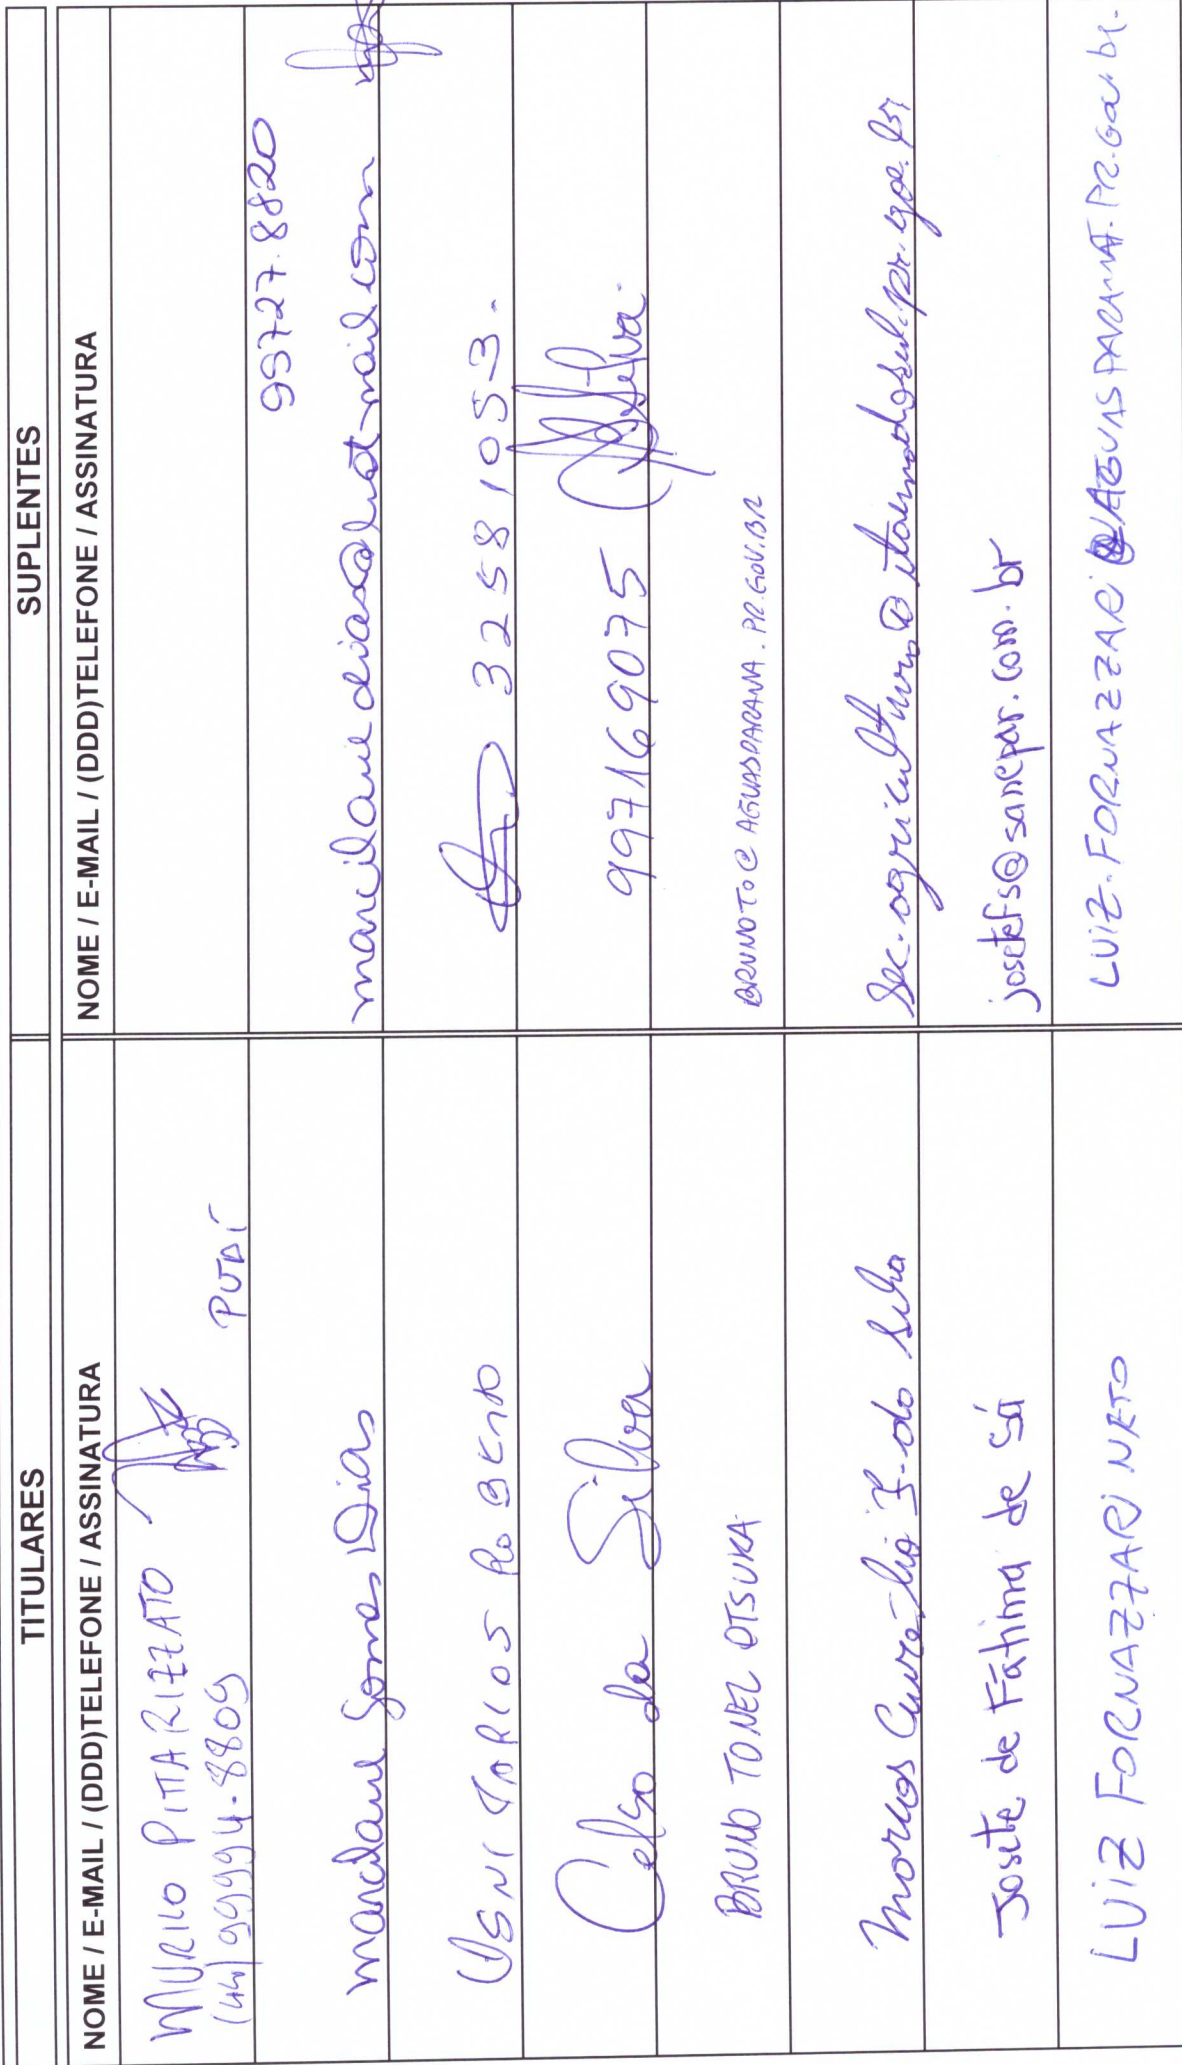 TITULARES
SUPLENTES
NOME / E-MAIL / (DDD)TELEFONE / ASSINATURA
NOME / E-MAIL / (DDD)TELEFONE / ASSINATURA
MURILO PITTARIZZATO
(44) 99994-8809
99727.8820
marcilane Gomes Dias
OSNI CARLOS
3258 1053.
Celso da Silva
997169075
BRUNO TONEL OTSUKA
BRUNOTO@AGUASPARANA.PR.GOV.BR
Marcos da Silva
Sec.agricultura@
Josete de Fátima de Sá
josetefs@sanepar.com.br
LUIZ FORNAZZARI NETO
LUIZ.FORNAZZARI@AGUASPARANA.PR.Gov.br.